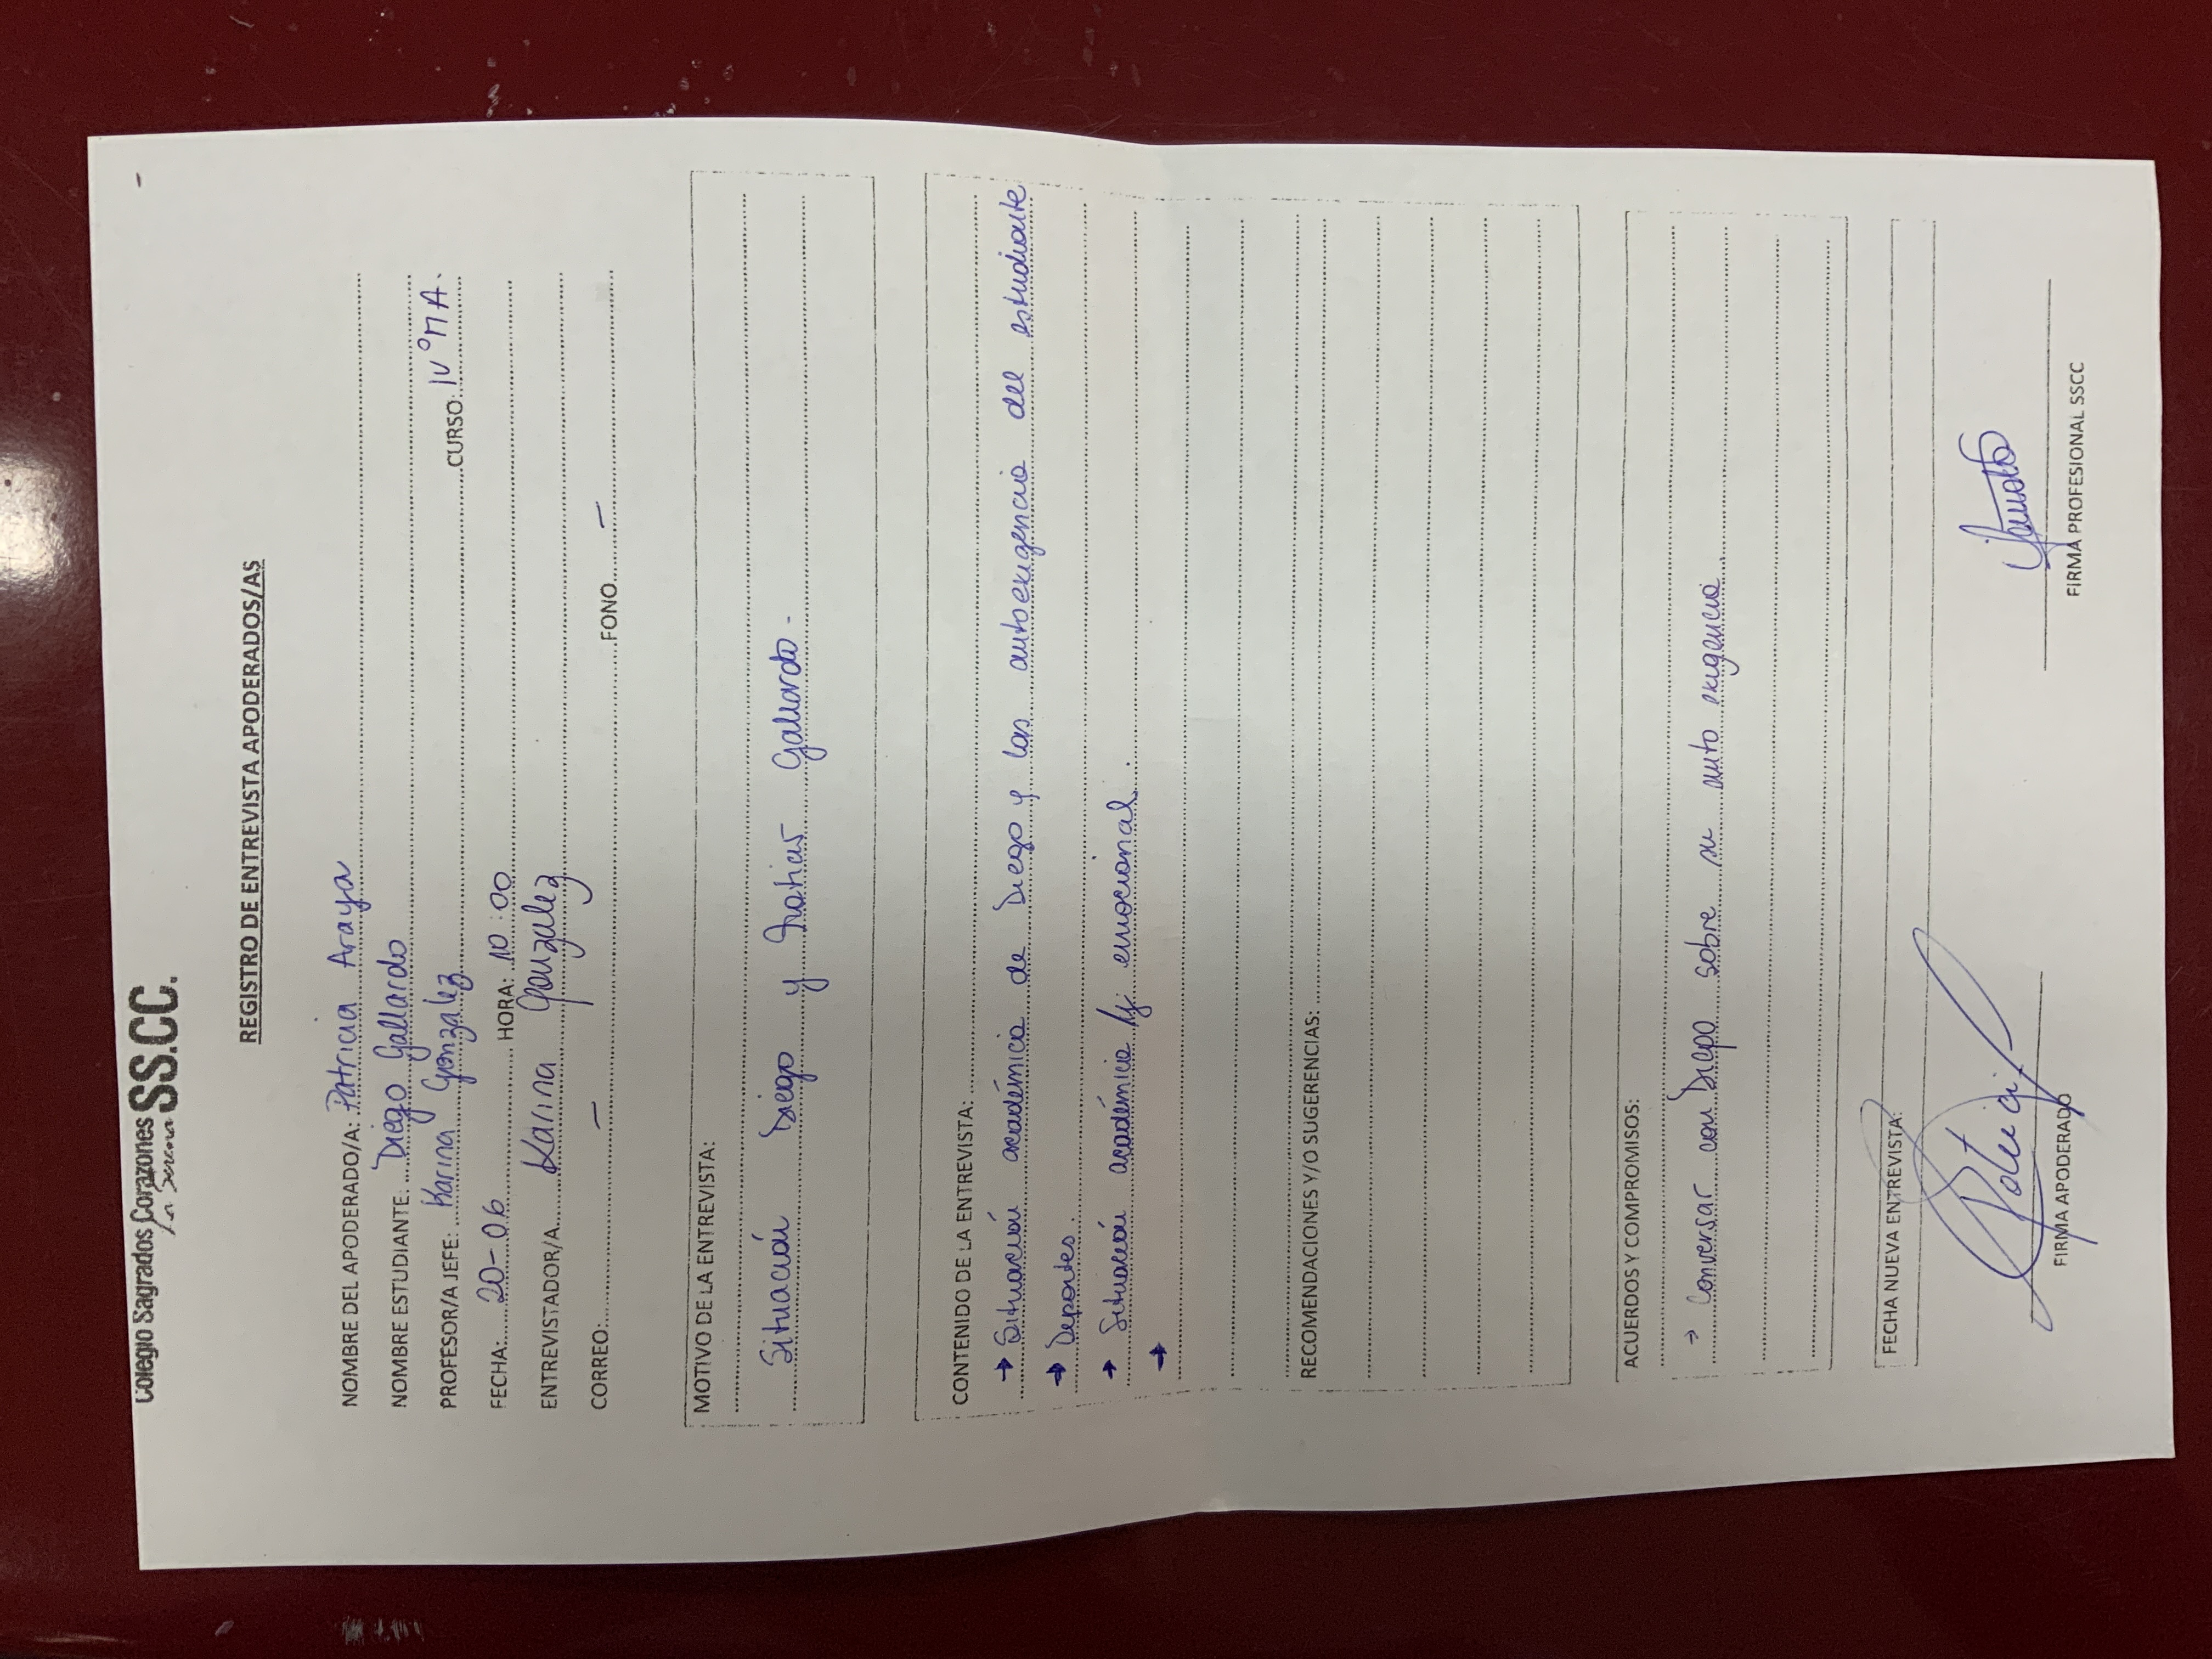 Colegio Sagrados Corazones SS.CC.
La Serena
REGISTRO DE ENTREVISTA APODERADOS/AS
NOMBRE DEL APODERADO/A: Patricia Araya
NOMBRE ESTUDIANTE: Diego Gallardo
PROFESOR/A JEFE: Karina Gonzalez CURSO: IV°MA.
FECHA: 20-06 HORA: 10:00
ENTREVISTADOR/A Karina Gonzalez
CORREO: — FONO —
MOTIVO DE LA ENTREVISTA:
Situación Diego y Gallardo.-
CONTENIDO DE LA ENTREVISTA:
→ Situación académica de Diego y las autoexigencia del estudiante
→ Deportes.
→ Situación académica y emocional.
→
RECOMENDACIONES Y/O SUGERENCIAS:
ACUERDOS Y COMPROMISOS:
→ Conversar con Diego sobre su auto exigencia.
FECHA NUEVA ENTREVISTA:
FIRMA APODERADO FIRMA PROFESIONAL SSCC